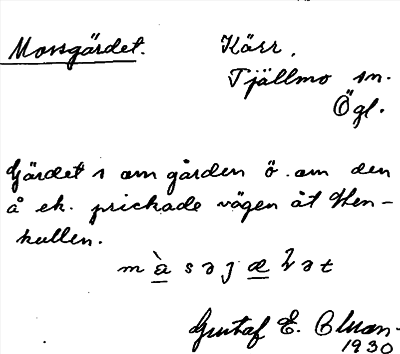 Mossgärdet. Kärr,
Tjällmo sn.
Ögl.
Gärdet s om gården ö. om den
å ek. prickade vägen åt Sten-
kullen.
Gustaf E.
1930